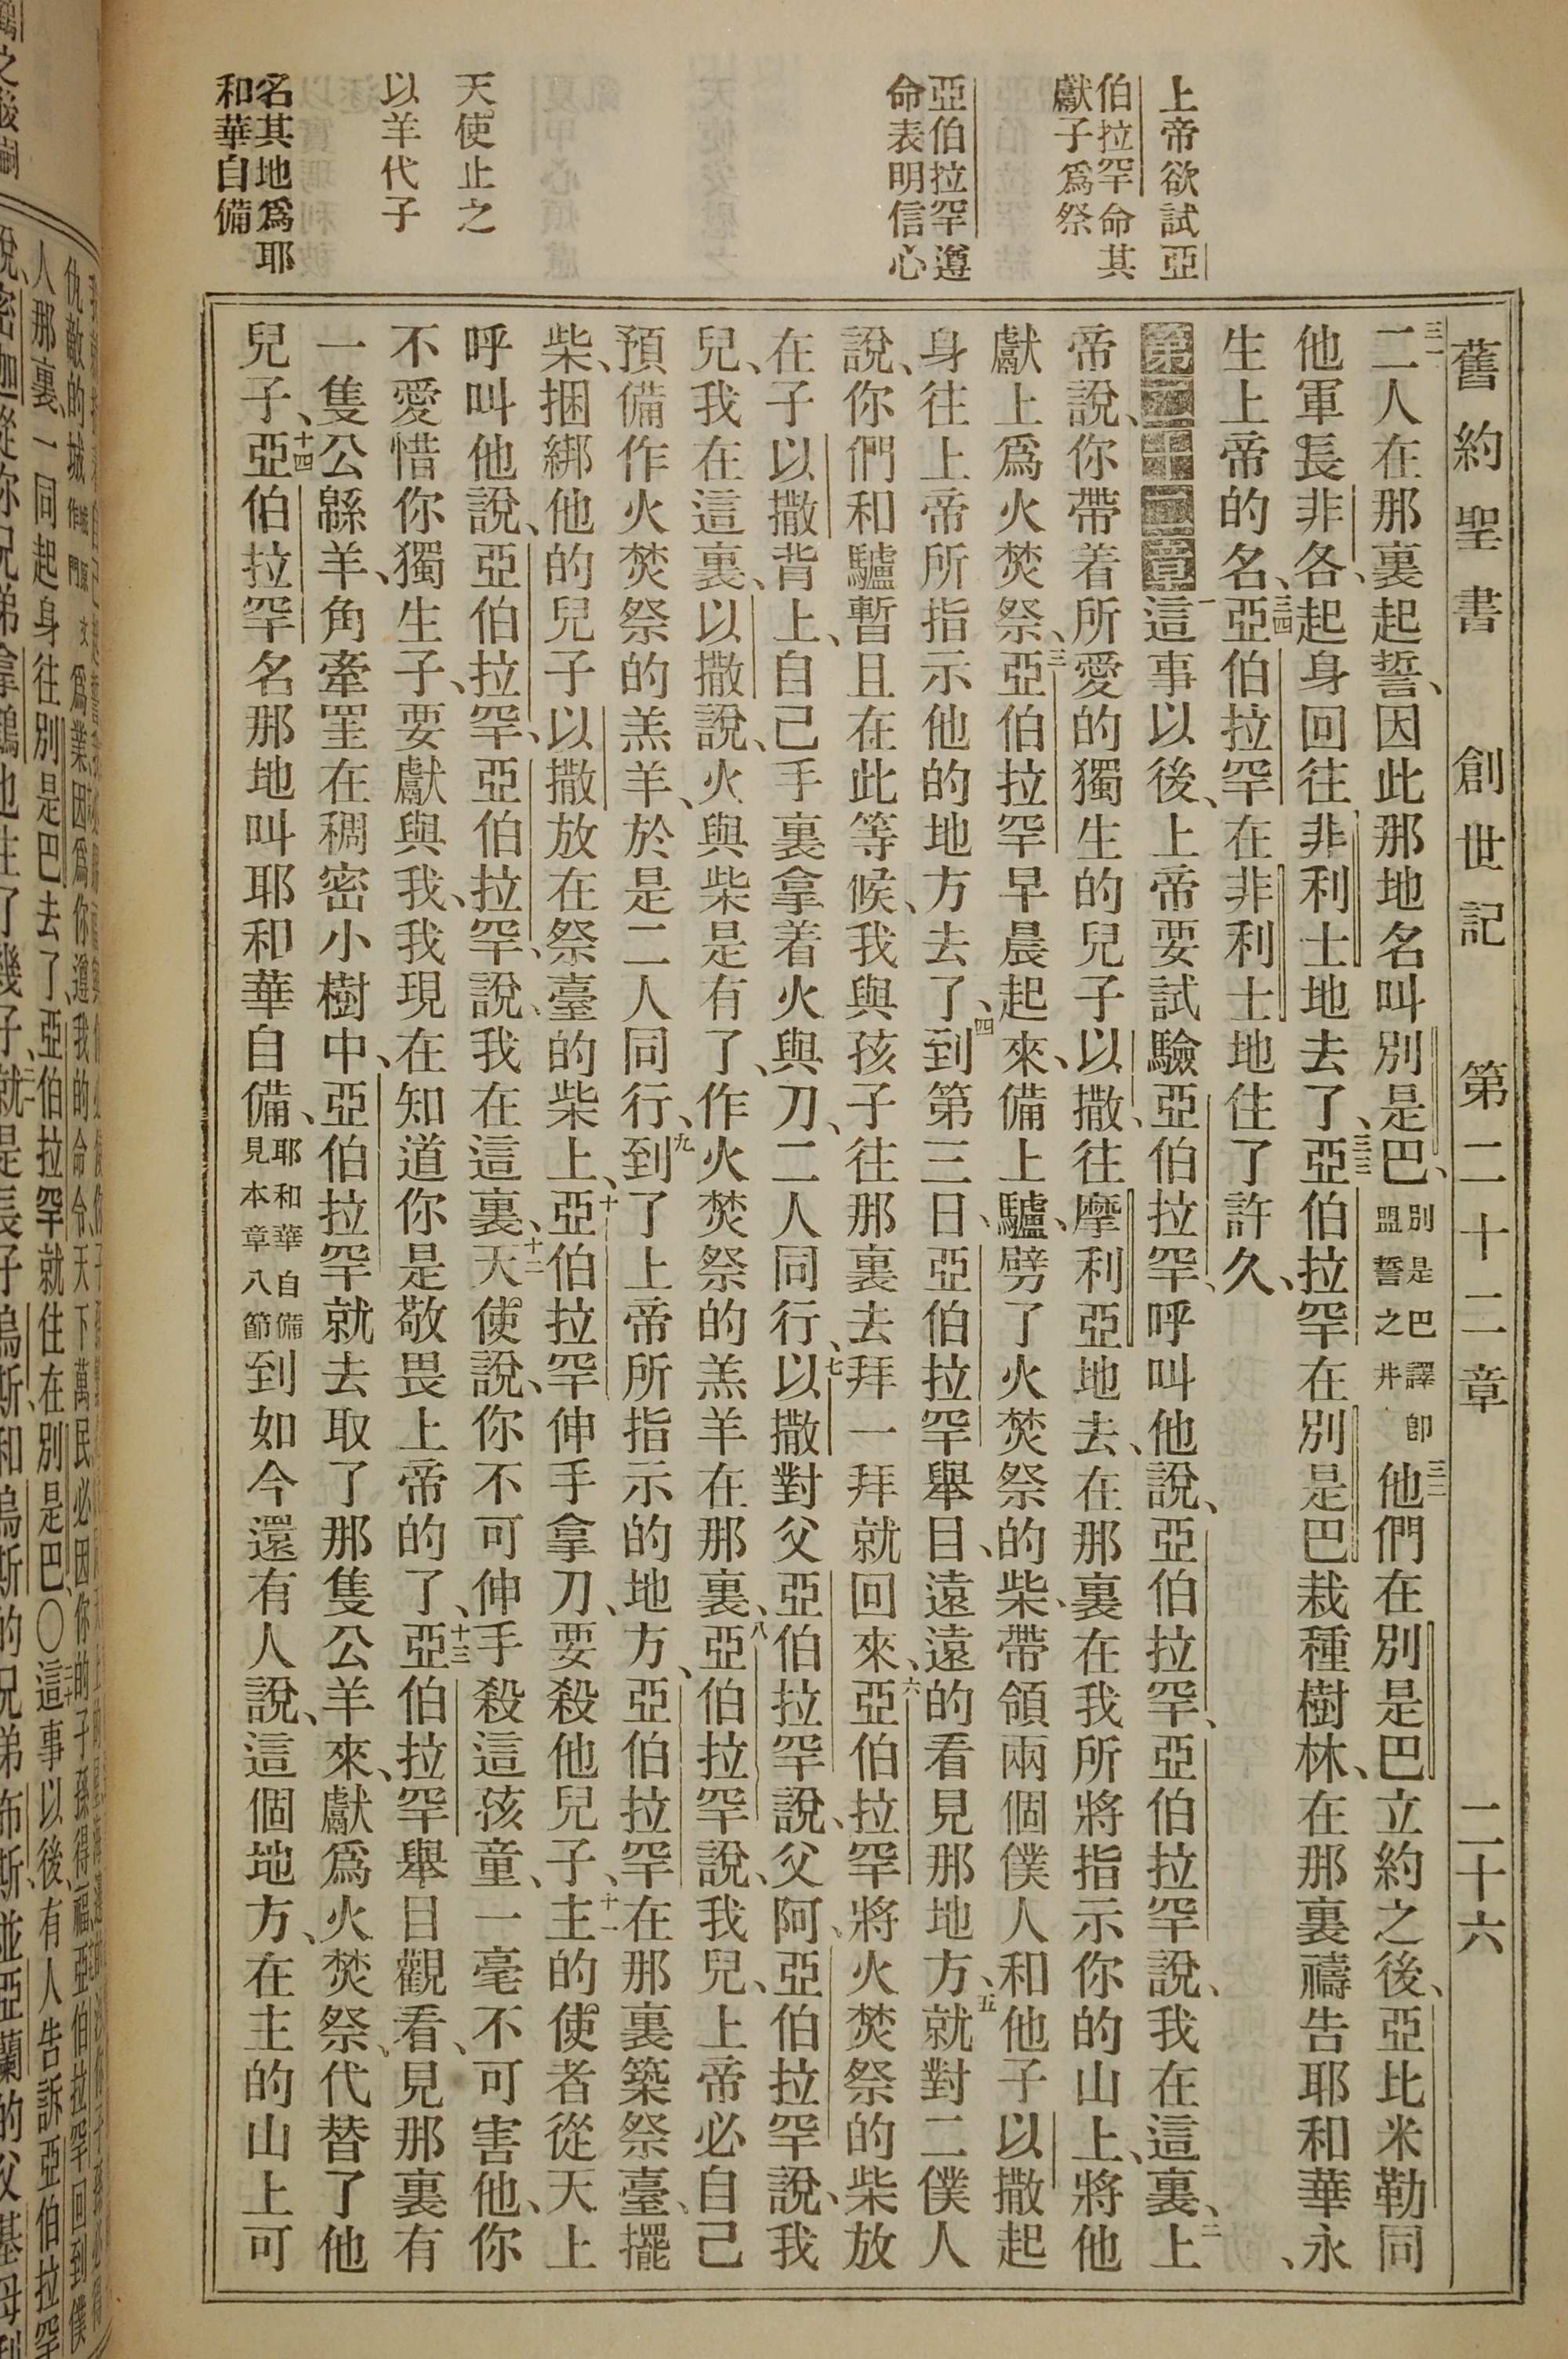 舊約聖書　創世記　第二十二章　二十六
上帝欲試亞
伯拉罕命其
獻子爲祭
亞伯拉罕遵
命表明信心
天使止之
以羊代子
名其地爲耶
和華自備
三一二人在那裏起誓、因此那地名叫別是巴、別是巴譯即盟誓之井三二他們在別是巴立約之後、亞比米勒同
他軍長非各、起身回往非利士地去了、三三亞伯拉罕在別是巴栽種樹林、在那裏禱告耶和華永
生上帝的名、三四亞伯拉罕在非利士地住了許久、
第二十二章一這事以後、上帝要試驗亞伯拉罕、呼叫他說、亞伯拉罕、亞伯拉罕說、我在這裏、二上
帝說、你帶着所愛的獨生的兒子以撒、往摩利亞地去、在那裏在我所將指示你的山上、將他
獻上爲火焚祭、三亞伯拉罕早晨起來、備上驢、劈了火焚祭的柴、帶領兩個僕人和他子以撒起
身往上帝所指示他的地方去了、四到第三日、亞伯拉罕舉目、遠遠的看見那地方、五就對二僕人
說、你們和驢暫且在此等候、我與孩子往那裏去拜一拜就回來、六亞伯拉罕將火焚祭的柴放
在子以撒背上、自己手裏拿着火與刀、二人同行、七以撒對父亞伯拉罕說、父阿、亞伯拉罕說、我
兒、我在這裏、以撒說、火與柴是有了、作火焚祭的羔羊在那裏、八亞伯拉罕說、我兒、上帝必自己
預備作火焚祭的羔羊、於是二人同行、九到了上帝所指示的地方、亞伯拉罕在那裏築祭臺、擺
柴、捆綁他的兒子以撒放在祭臺的柴上、十亞伯拉罕伸手拿刀、要殺他兒子、十一主的使者從天上
呼叫他說、亞伯拉罕、亞伯拉罕、說、我在這裏、十二天使說、你不可伸手殺這孩童、一毫不可害他、你
不愛惜你獨生子、要獻與我、我現在知道你是敬畏上帝的了、十三亞伯拉罕舉目觀看、見那裏有
一隻公緜羊、角牽罣在稠密小樹中、亞伯拉罕就去取了那隻公羊來、獻爲火焚祭、代替了他
兒子、十四亞伯拉罕名那地叫耶和華自備、耶和華自備見本章八節到如今還有人說、這個地方、在主的山上可